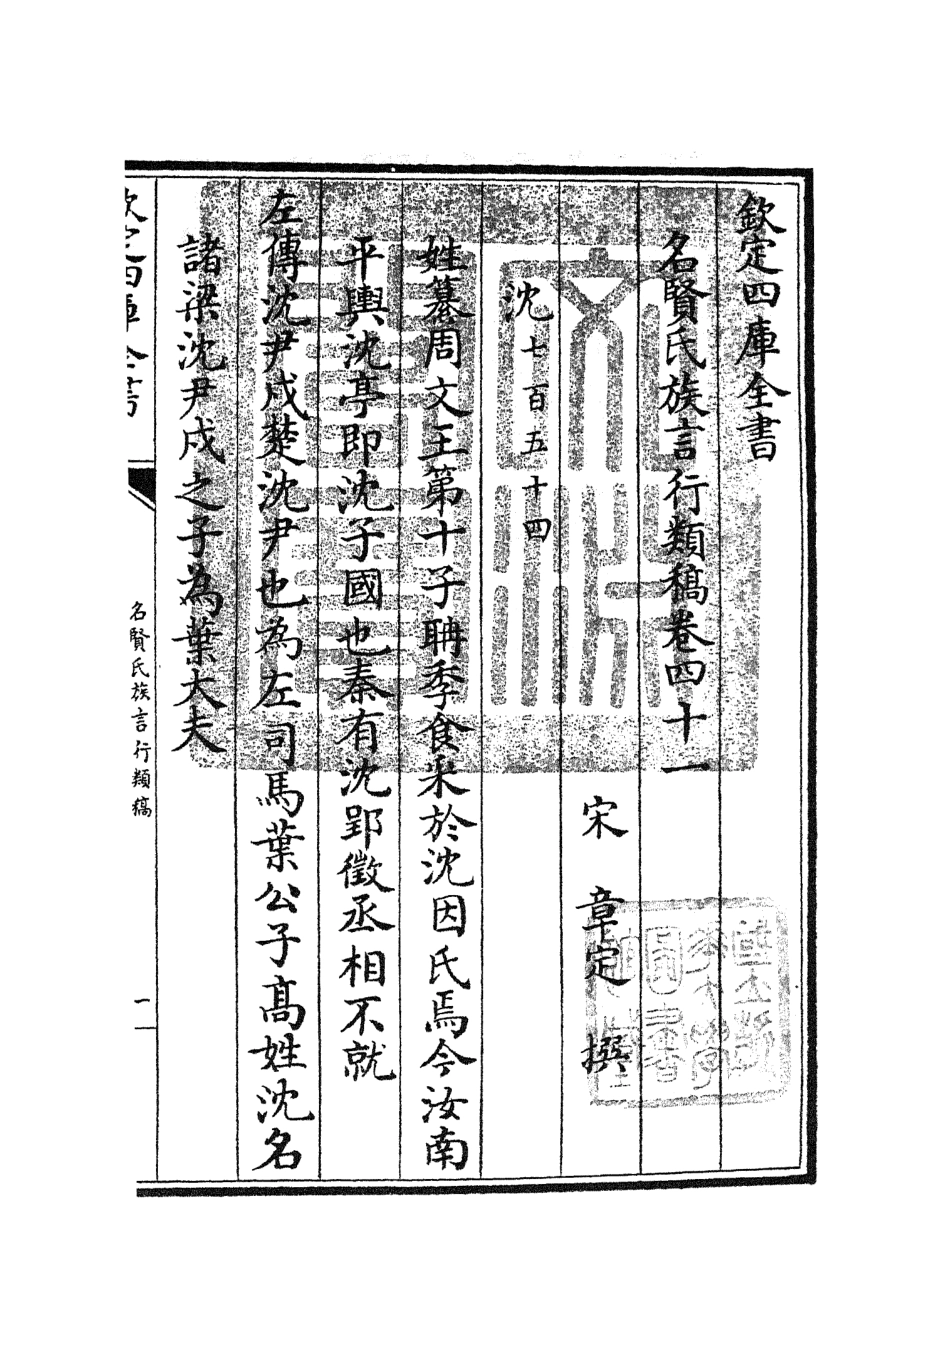 欽定四庫全書
名賢氏族言行類稿卷四十一
宋 章定 撰
沈 七百五十四
姓纂周文王第十子聃季食采於沈因氏焉今汝南
平輿沈亭即沈子國也秦有沈郢徵丞相不就
左傳沈尹戍楚沈尹也為左司馬葉公子髙姓沈名
諸梁沈尹戍之子為葉大夫
欽定四庫全書
名賢氏族言行類稿
一